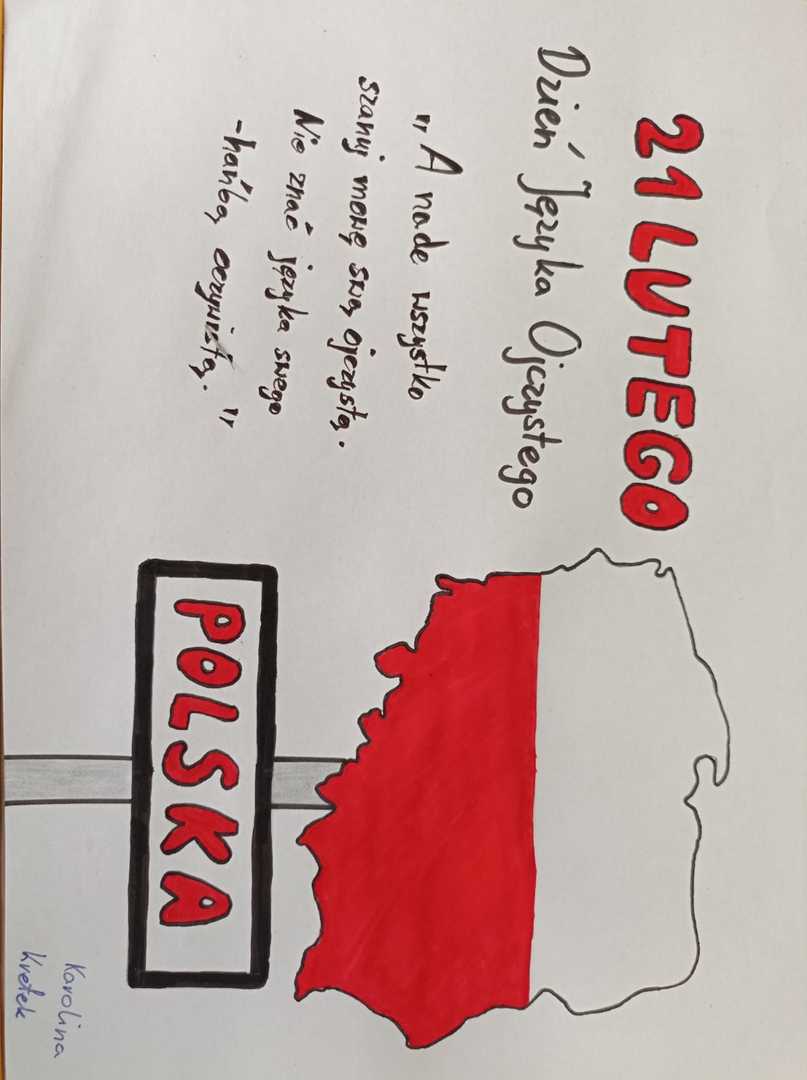 21 LUTEGO
Dzień Języka Ojczystego
"A nade wszystko
szanuj mowę swą ojczystą.
Nie znać języka swego
-hańbą oczywistą."
POLSKA
Karolina
Kretek